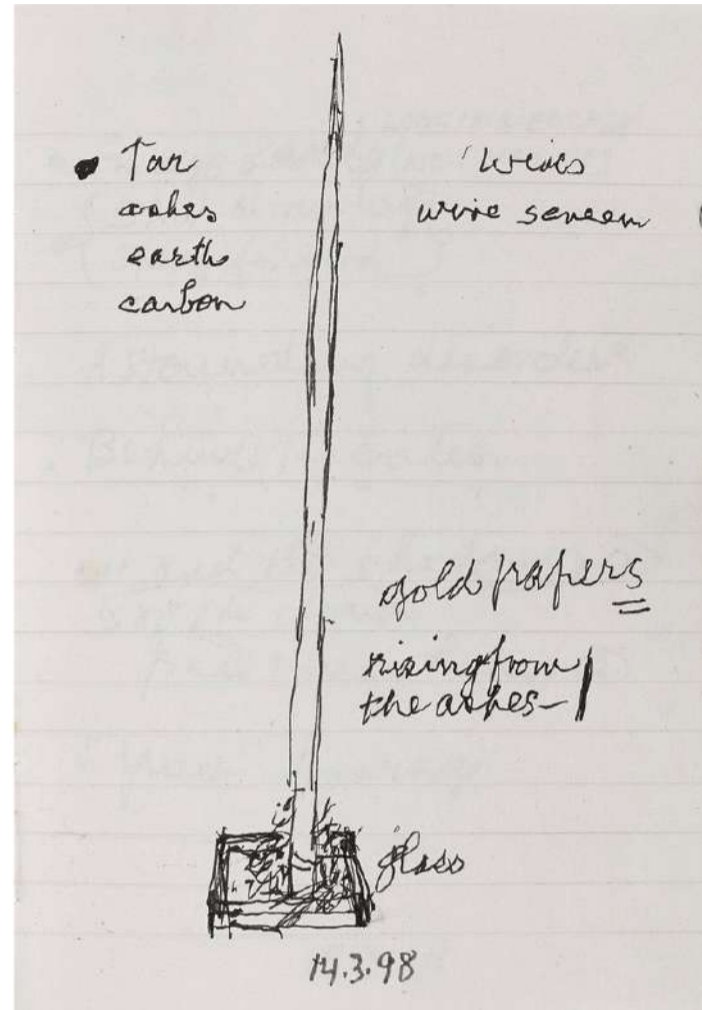 • Tar
ashes
earth
carbon
wires
wire screen
gold papers
rising from
the ashes-
glass
14.3.98